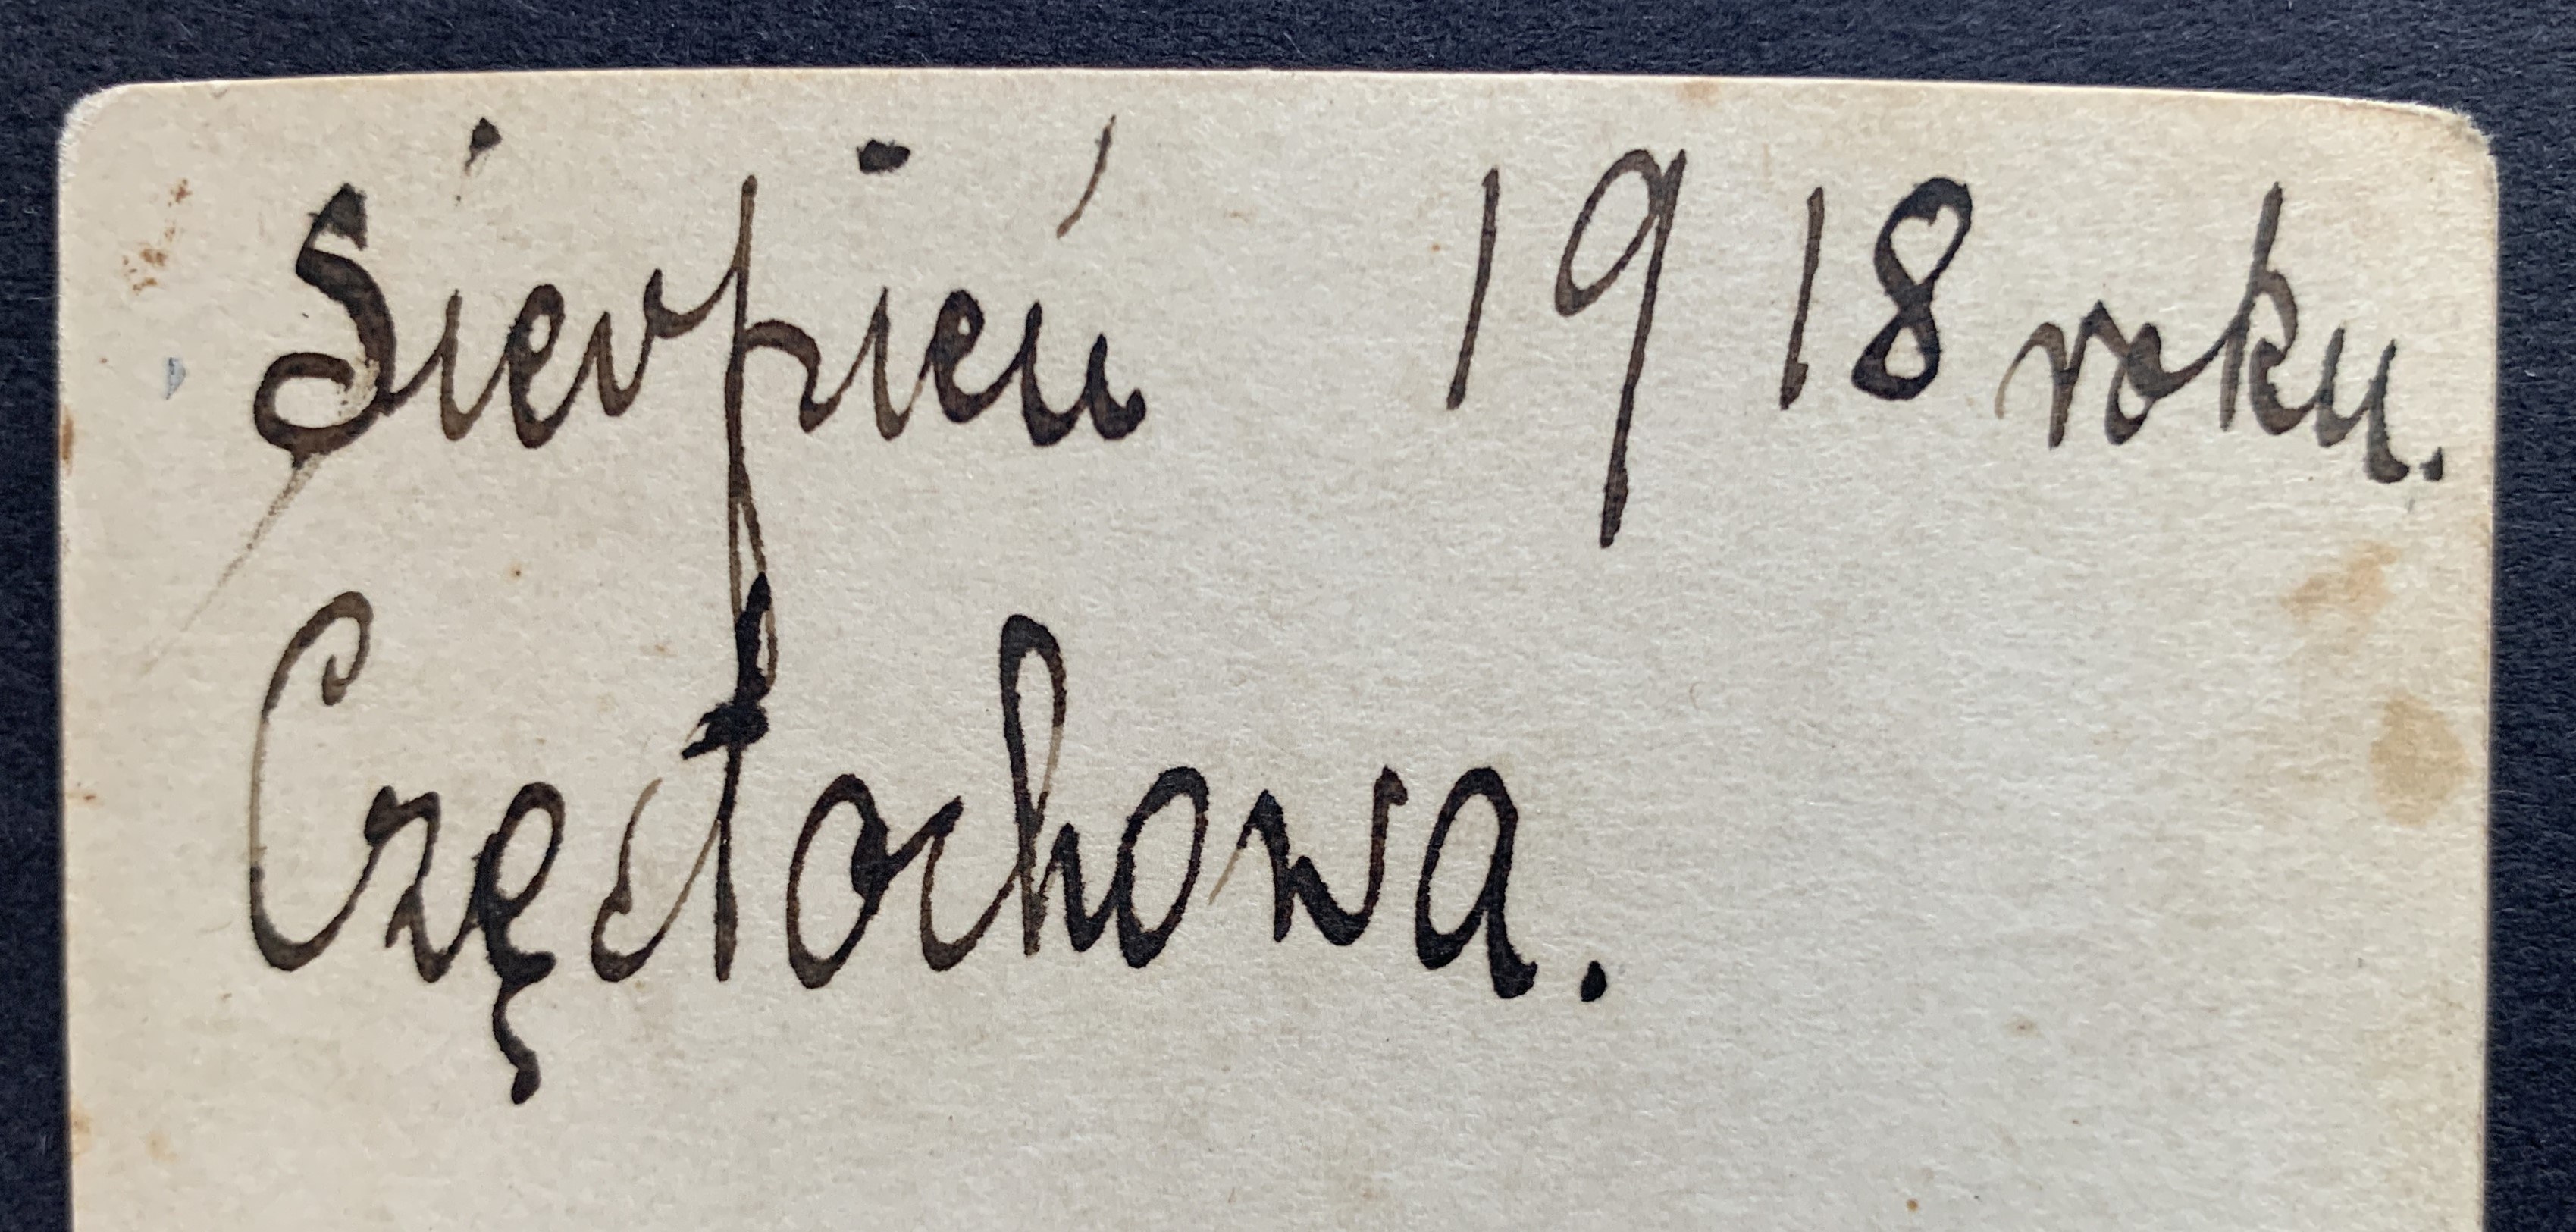 Sierpień 1918 roku.
Częstochowa.